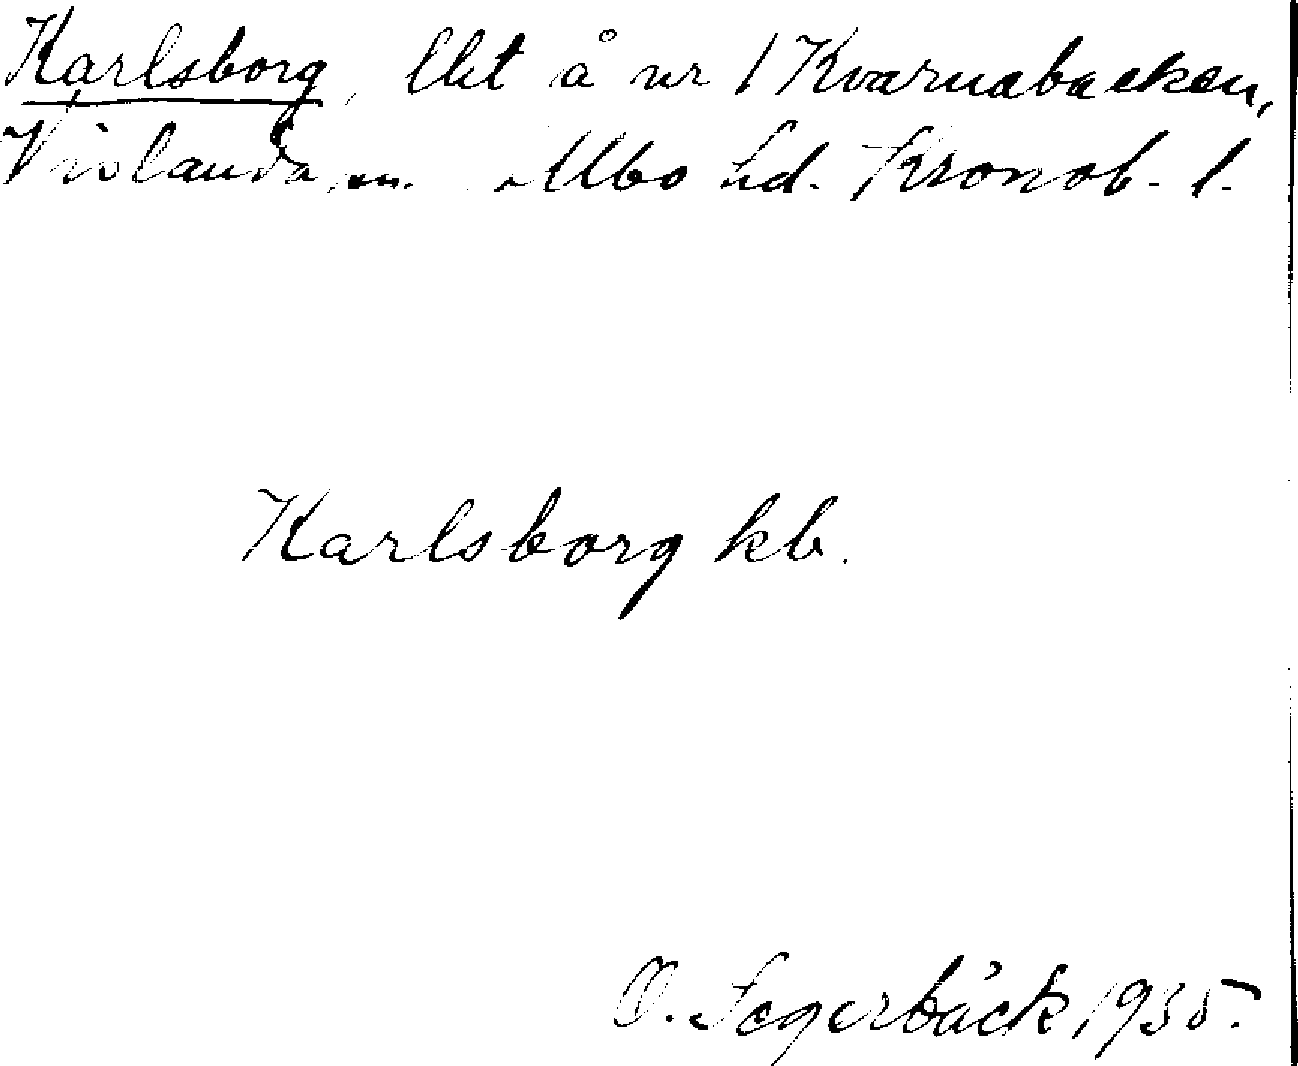 Karlsborg, lht å nr 1 Kvarnabacken,
Vislanda sn. Allbo hd. Kronob. l.
Karlsborg kb.
O. Fagerbäck, 1935.